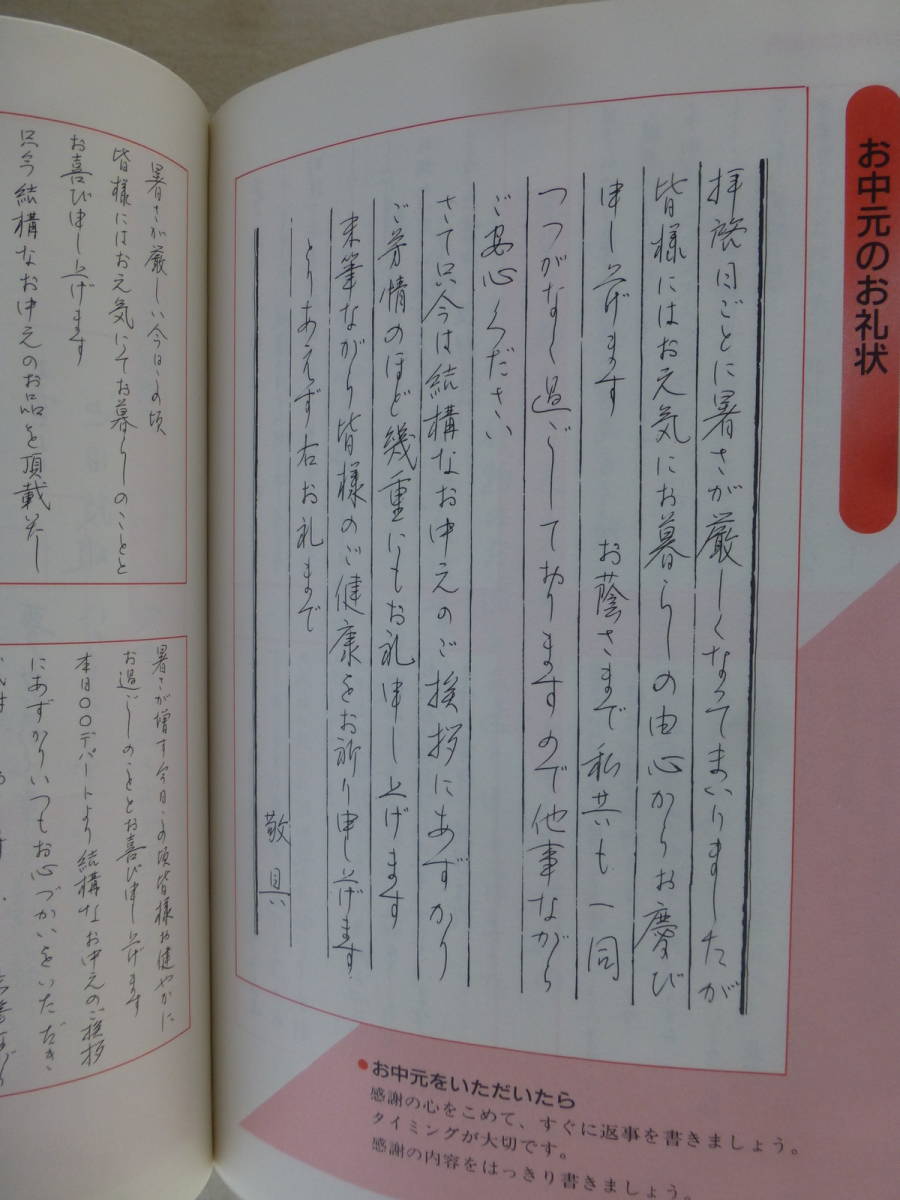 お中元のお礼状
拝啓日ごとに暑さが厳しくなってまいりましたが
皆様にはお元気にお暮らしの由心からお慶び
申し上げます　お蔭さまで私共も一同
つつがなく過ごしておりますので他事ながら
ご安心ください
さて只今は結構なお中元のご挨拶にあずかり
ご芳情のほど幾重にもお礼申し上げます
末筆ながら皆様のご健康をお祈り申し上げます
とりあえず右お礼まで
敬具
●お中元をいただいたら
感謝の心をこめて、すぐに返事を書きましょう。
タイミングが大切です。
感謝の内容をはっきり書きましょう。
暑さが厳しい今日この頃
皆様にはお元気にてお暮らしのことと
お喜び申し上げます
只今結構なお中元のお品を頂載致し
暑さが増す今日この頃皆様お健やかに
お過ごしのこととお喜び申し上げます
本日〇〇デパートより結構なお中元のご挨拶
にあずかりいつもお心づかいをいただき